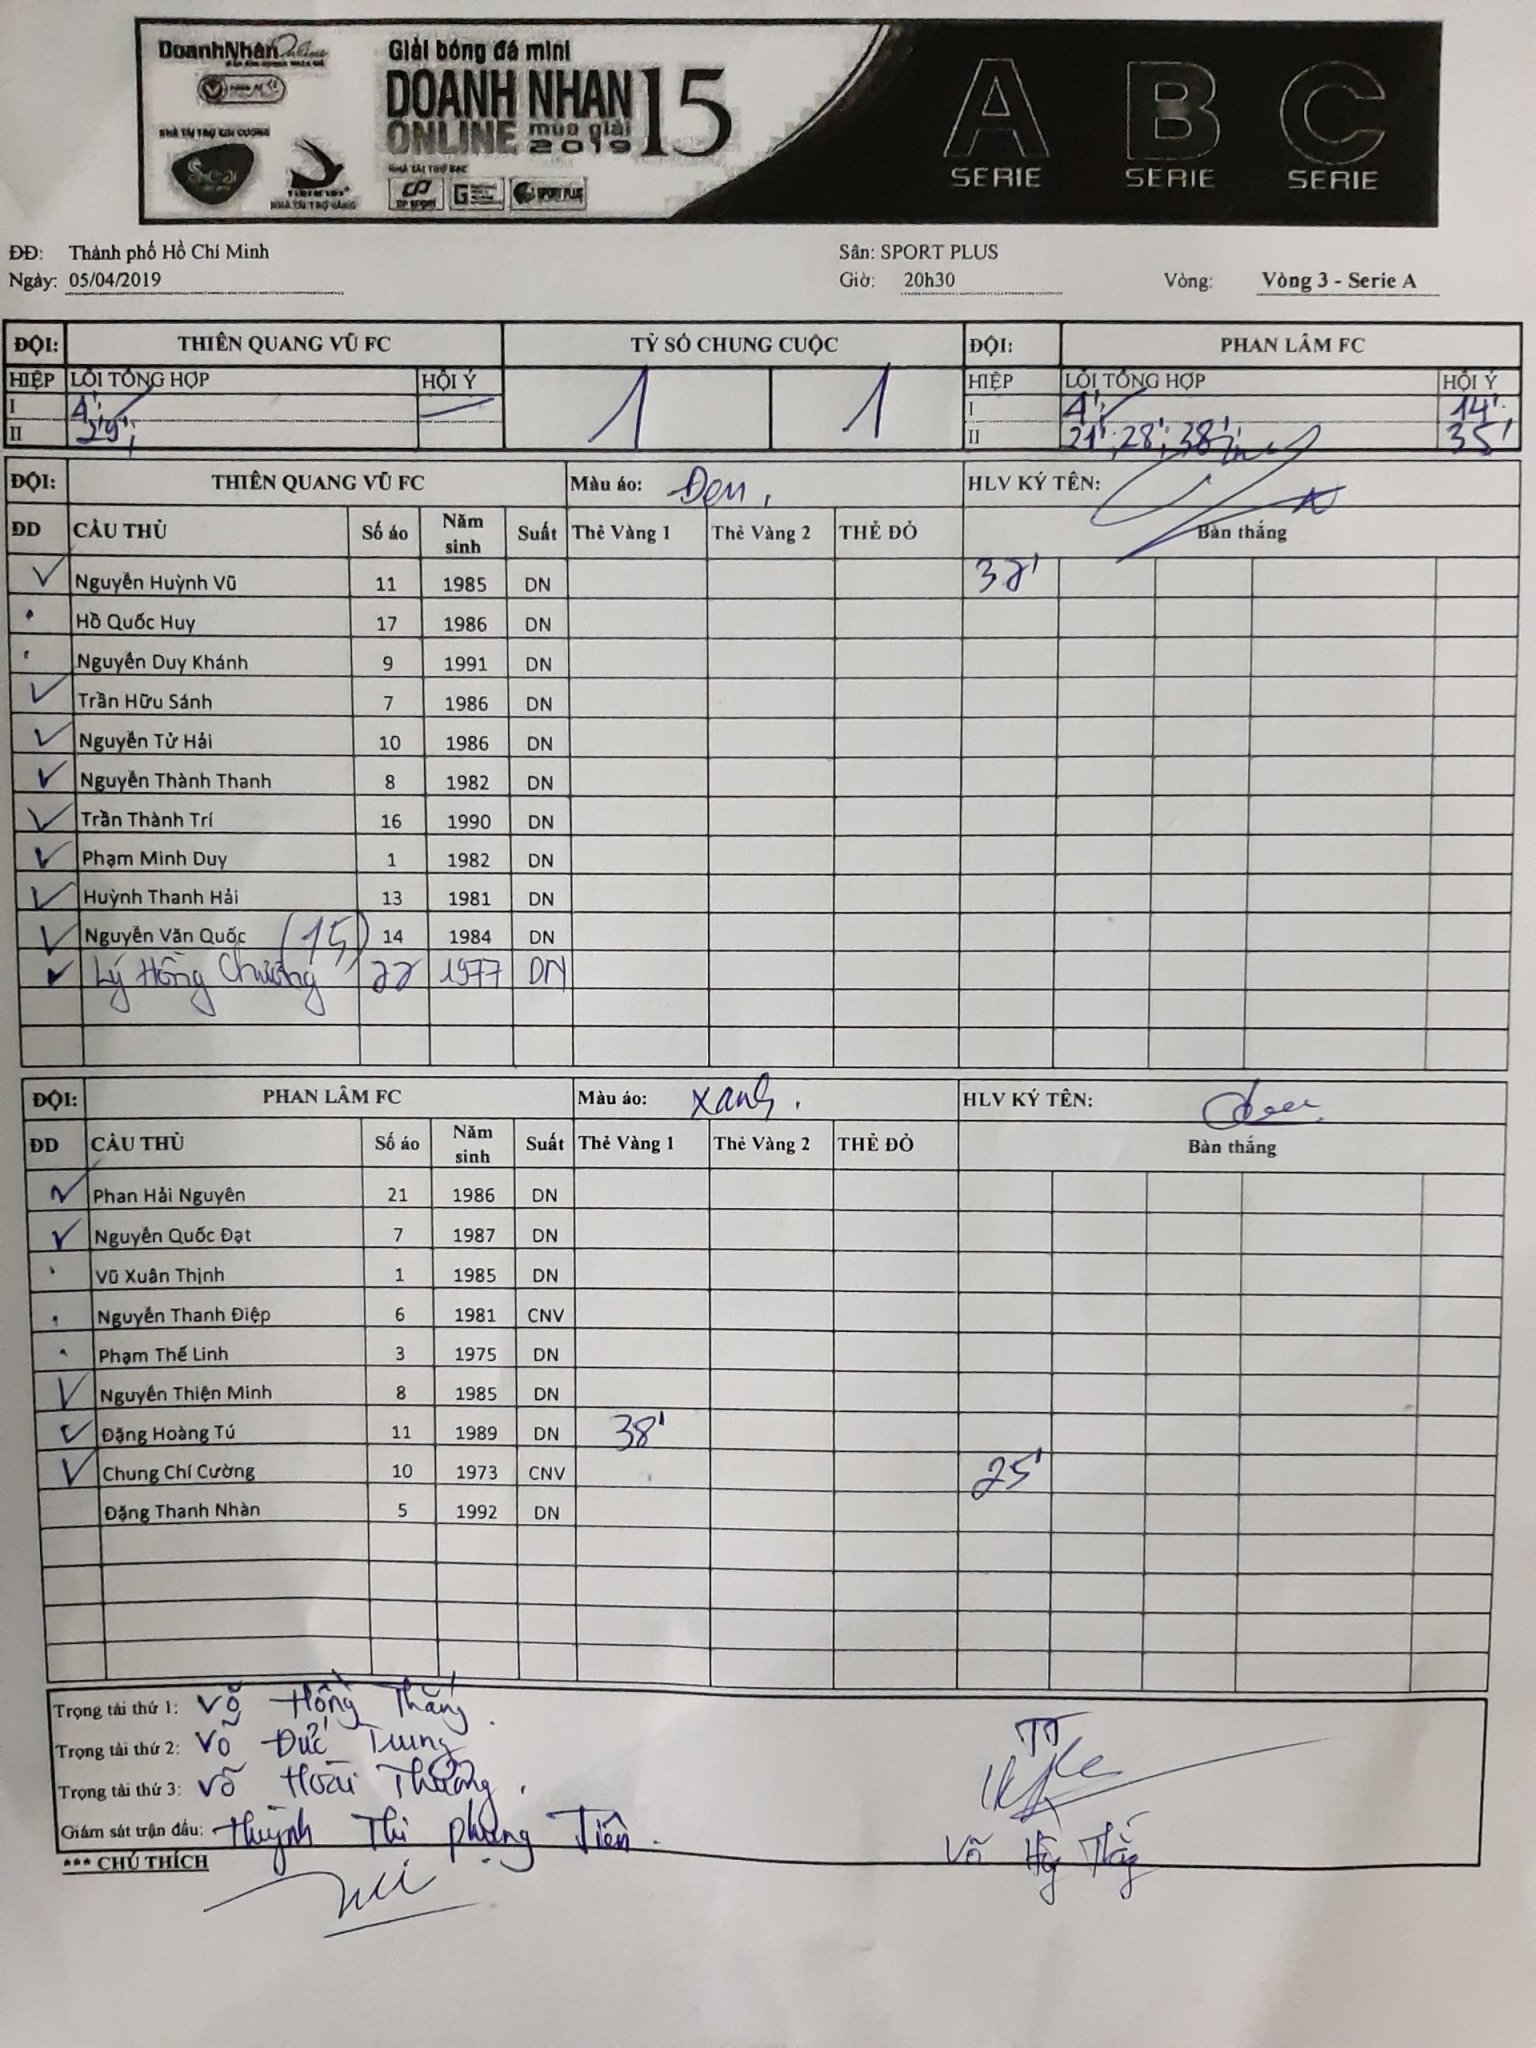 DoanhNhân Online
Giải bóng đá mini
DOANH NHAN 15
ONLINE mùa giải 2019
NHÀ TÀI TRỢ KIM CƯƠNG
NHÀ TÀI TRỢ VÀNG
NHÀ TÀI TRỢ BẠC
SPORT PLUS
A B C
SERIE SERIE SERIE
ĐĐ: Thành phố Hồ Chí Minh Sân: SPORT PLUS
Ngày: 05/04/2019 Giờ: 20h30 Vòng: Vòng 3 - Serie A
ĐỘI: THIÊN QUANG VŨ FC TỶ SỐ CHUNG CUỘC ĐỘI: PHAN LÂM FC
HIỆP LỖI TỔNG HỢP HỘI Ý 1 1 HIỆP LỖI TỔNG HỢP HỘI Ý
I 4'; I 4'; 14'
II 29'; II 21'; 28'; 38' 35'
ĐỘI: THIÊN QUANG VŨ FC Màu áo: Đen. HLV KÝ TÊN:
ĐD CẦU THỦ Số áo Năm sinh Suất Thẻ Vàng 1 Thẻ Vàng 2 THẺ ĐỎ Bàn thắng
Nguyễn Huỳnh Vũ 11 1985 DN 32'
Hồ Quốc Huy 17 1986 DN
Nguyễn Duy Khánh 9 1991 DN
Trần Hữu Sánh 7 1986 DN
Nguyễn Tử Hải 10 1986 DN
Nguyễn Thành Thanh 8 1982 DN
Trần Thành Trí 16 1990 DN
Phạm Minh Duy 1 1982 DN
Huỳnh Thanh Hải 13 1981 DN
Nguyễn Văn Quốc (15) 14 1984 DN
Lý Hồng Chương 22 1977 DN
ĐỘI: PHAN LÂM FC Màu áo: Xanh. HLV KÝ TÊN:
ĐD CẦU THỦ Số áo Năm sinh Suất Thẻ Vàng 1 Thẻ Vàng 2 THẺ ĐỎ Bàn thắng
Phan Hải Nguyên 21 1986 DN
Nguyễn Quốc Đạt 7 1987 DN
Vũ Xuân Thịnh 1 1985 DN
Nguyễn Thanh Điệp 6 1981 CNV
Phạm Thế Linh 3 1975 DN
Nguyễn Thiện Minh 8 1985 DN
Đặng Hoàng Tú 11 1989 DN 38'
Chung Chí Cường 10 1973 CNV 25'
Đặng Thanh Nhàn 5 1992 DN
Trọng tài thứ 1: Võ Hồng Thắng.
Trọng tài thứ 2: Võ Đức Trung
Trọng tài thứ 3: Võ Hoài Thương.
Giám sát trận đấu: Huỳnh Thi Phụng Tiên.
Võ Hồng Thắng
*** CHÚ THÍCH